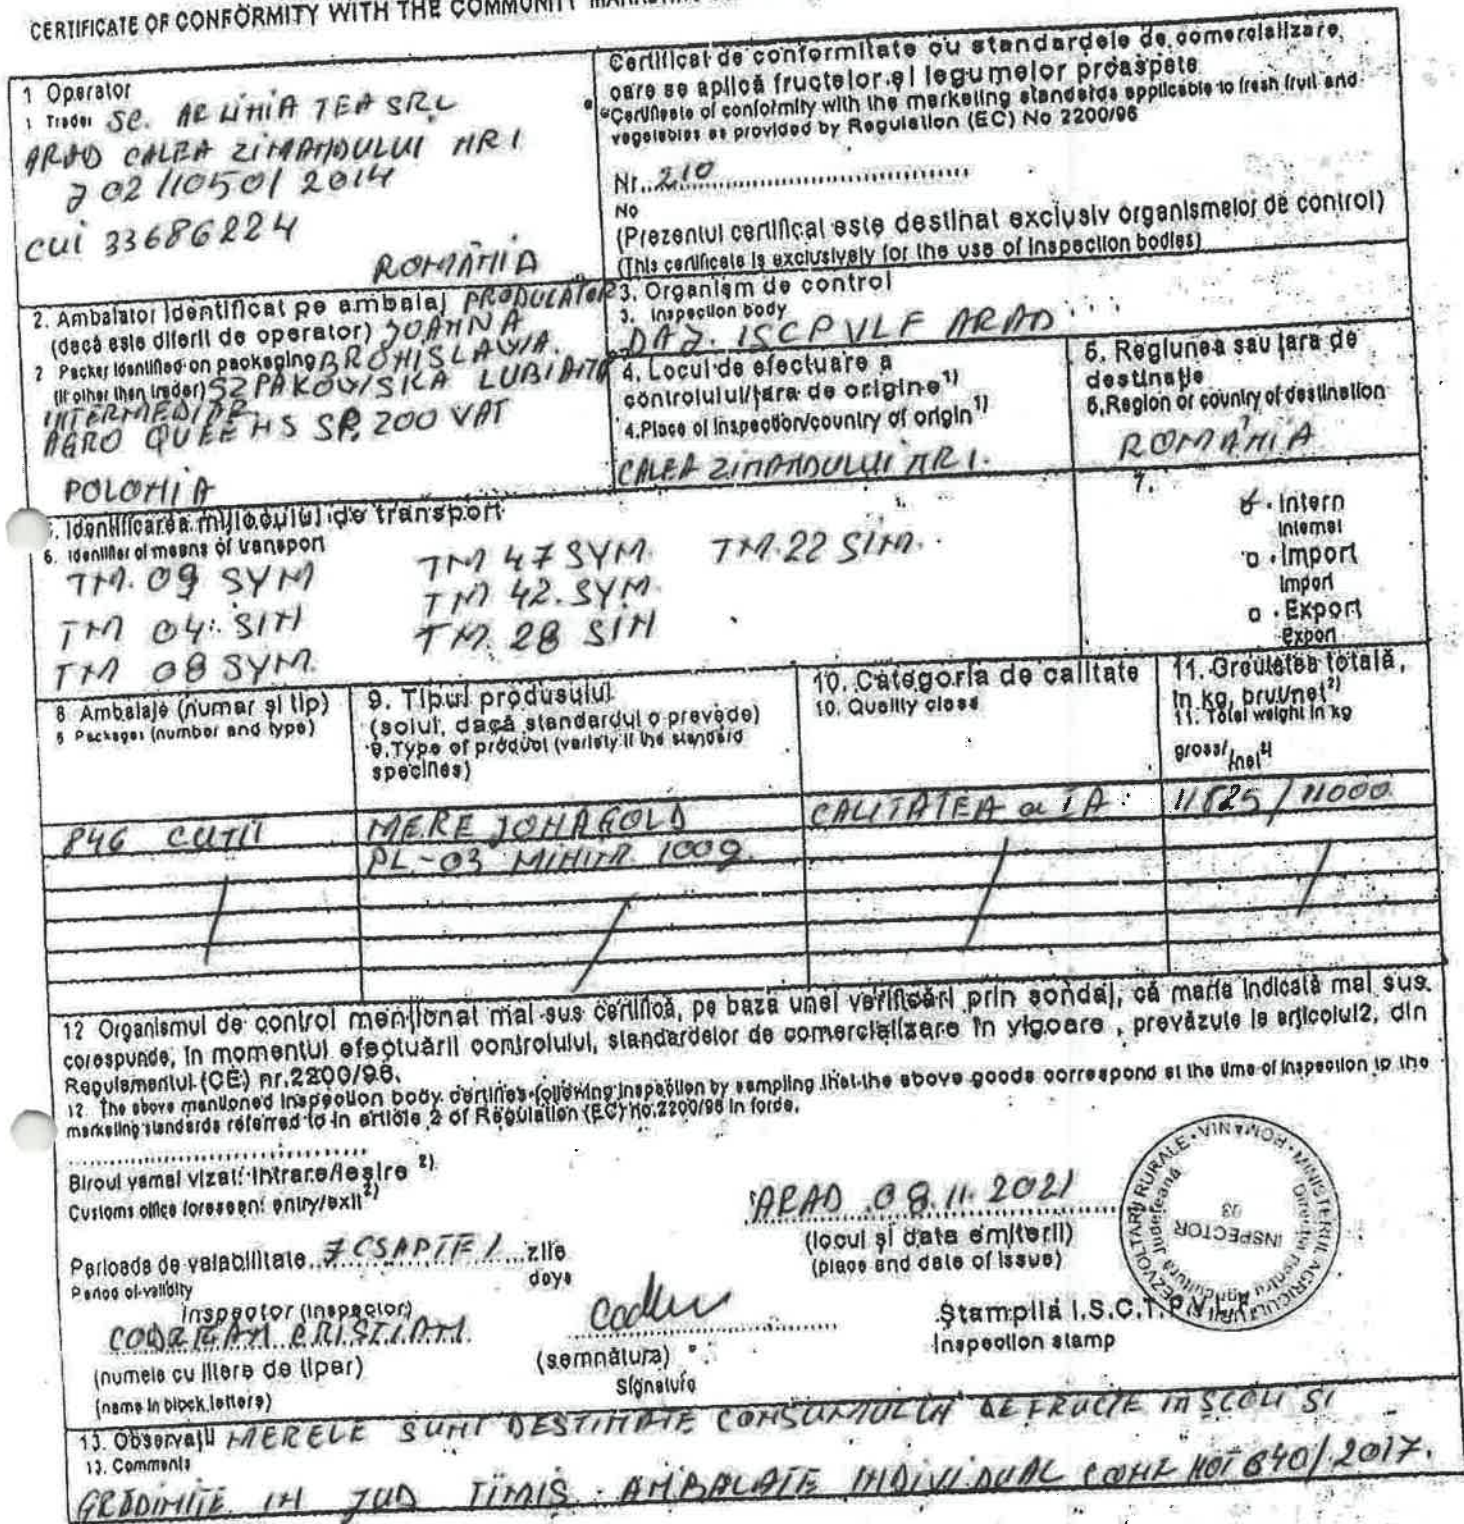 CERTIFICATE OF CONFORMITY WITH THE COMMUNITY
1 Operator
1 Trader SC.
TEA SRL
ARAD CALEA ZIMANDULUI NR 1
J 02 /1050/ 2014
CUI 33686224
ROMÂNIA
Certificat de conformitate cu standardele de comercializare,
care se aplică fructelor și legumelor proaspete
Certificate of conformity with the marketing standards applicable to fresh fruit and
vegetables as provided by Regulation (EC) No 2200/96
Nr. 210
No
(Prezentul certificat este destinat exclusiv organismelor de control)
(This certificate is exclusively for the use of inspection bodies)
2. Ambalator identificat pe ambalaj PRODUCATOR
(dacă este diferit de operator) JOANNA
2 Packer identified on packaging BRONISLAVIA
(if other than trader) SZPAKOVISKA
INTERMEDIAR
AGRO QUEENS SP. 200 VAT
POLONIA
3. Organism de control
3. Inspection body
DAJ. ISCPVLF ARAD
4. Locul de efectuare a
controlului/țara de origine 1)
4. Place of inspection/country of origin 1)
CALEA ZIMANDULUI NR 1.
5. Regiunea sau țara de
destinație
5. Region or country of destination
ROMÂNIA
6. Identificarea mijlocului de transport
6. Identifier of means of transport
TM. 09 SYM TM 47 SYM. TM. 22 SIM.
TM 04. SIM TM 42. SYM.
TM 08 SYM. TM. 28 SIM
7.
Intern
Internal
Import
Import
Export
Export
8 Ambalaje (numar și tip)
8 Packages (number and type)
9. Tipul produsului
(soiul, dacă standardul o prevede)
9. Type of product (variety if the standard
specifies)
10. Categoria de calitate
10. Quality class
11. Greutatea totală,
în kg, brut/net 2)
11. Total weight in kg
gross/net
846 CUTII MERE JONAGOLD CALITATEA a IA 11825/11000
PL-03 100g.
12 Organismul de control menționat mai sus certifică, pe baza unei verificări prin sondaj, că marfa indicată mai sus.
corespunde, în momentul efectuării controlului, standardelor de comercializare în vigoare, prevăzute la articolul2, din
Regulamentul (CE) nr.2200/96.
12. The above mentioned inspection body certifies following inspection by sampling that the above goods correspond at the time of inspection to the
marketing standards referred to in article 2 of Regulation (EC) no.2200/96 in force.
Biroul vamal vizat: intrare/ieșire 2)
Customs office foreseen: entry/exit 2)
ARAD 08.11.2021
(locul și data emiterii)
(place and date of issue)
Perioada de valabilitate 7 (SAPTE) zile
Period of validity days
Inspector (inspector)
CODREAN CRISTIAN
(numele cu litere de tipar)
(name in block letters)
(semnătura)
Signature
Ștampila I.S.C.T.P.V.L.F.
Inspection stamp
ROMANIA • MINISTERUL AGRICULTURII DEZVOLTARII RURALE
Direcția pentru Agricultură Județeană
INSPECTOR
03
13. Observații MERELE SUNT DESTINATE CONSUMULUI DE FRUCTE IN SCOLI SI
13. Comments
GRĂDINIȚE IN JUD TIMIS. AMBALATE INDIVIDUAL CONF HOT 640/2017.